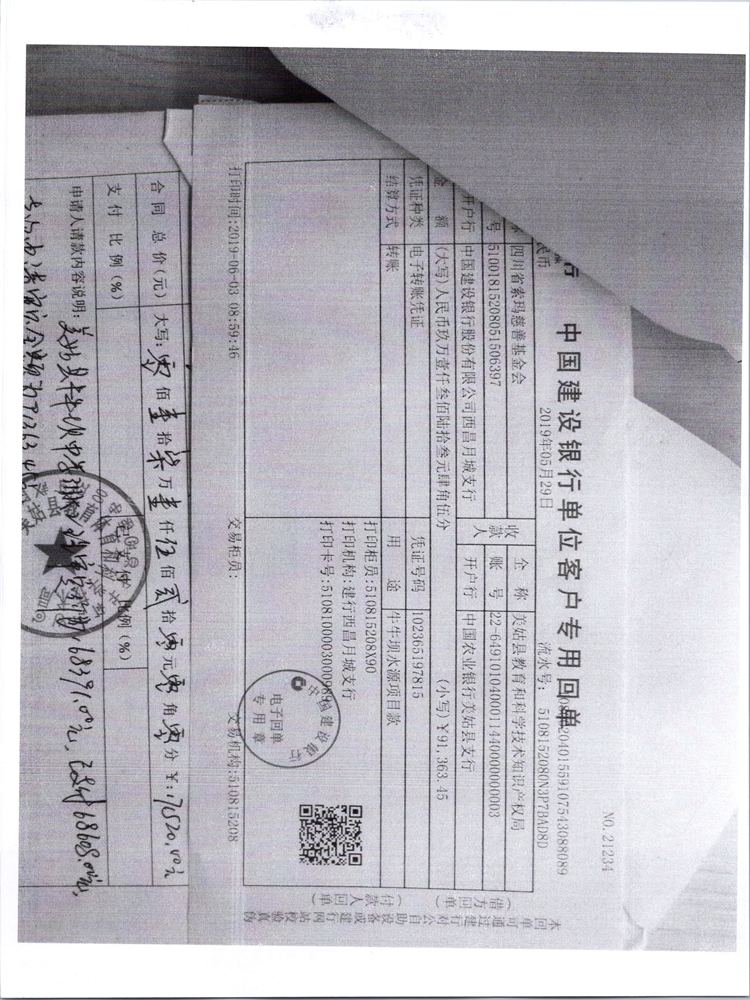 中国建设银行单位客户专用回单
NO.21234
民币
2019年05月29日
流水号: 5108152080N3P7BAD8D
四川省索玛慈善基金会
号 51001815208051506397
开户行 中国建设银行股份有限公司西昌月城支行
收款人
全 称 美姑县教育和科学技术知识产权局
账 号 22-649101040001144000000003
开户行 中国农业银行美姑县支行
金 额 (大写)人民币玖万壹仟叁佰陆拾叁元肆角伍分 (小写)¥91,363.45
凭证种类 电子转账凭证 凭证号码 102365197815
结算方式 转账 用 途 牛牛坝水源项目款
打印柜员:510815208X90
打印机构:建行西昌月城支行
打印卡号:5108100003000989
中国建设银行
电子回单
专用章
打印时间:2019-06-03 08:59:46 交易柜员: 交易机构:510815208
(借方回单)
(付款人回单)
本回单可通过建行对公自助设备或建行网站校验真伪
合同总价(元) 大写:零佰壹拾柒万壹仟伍佰贰拾零元零角零分 ¥:
支付比例(%)
例(%)
申请人请款内容说明: 美姑县